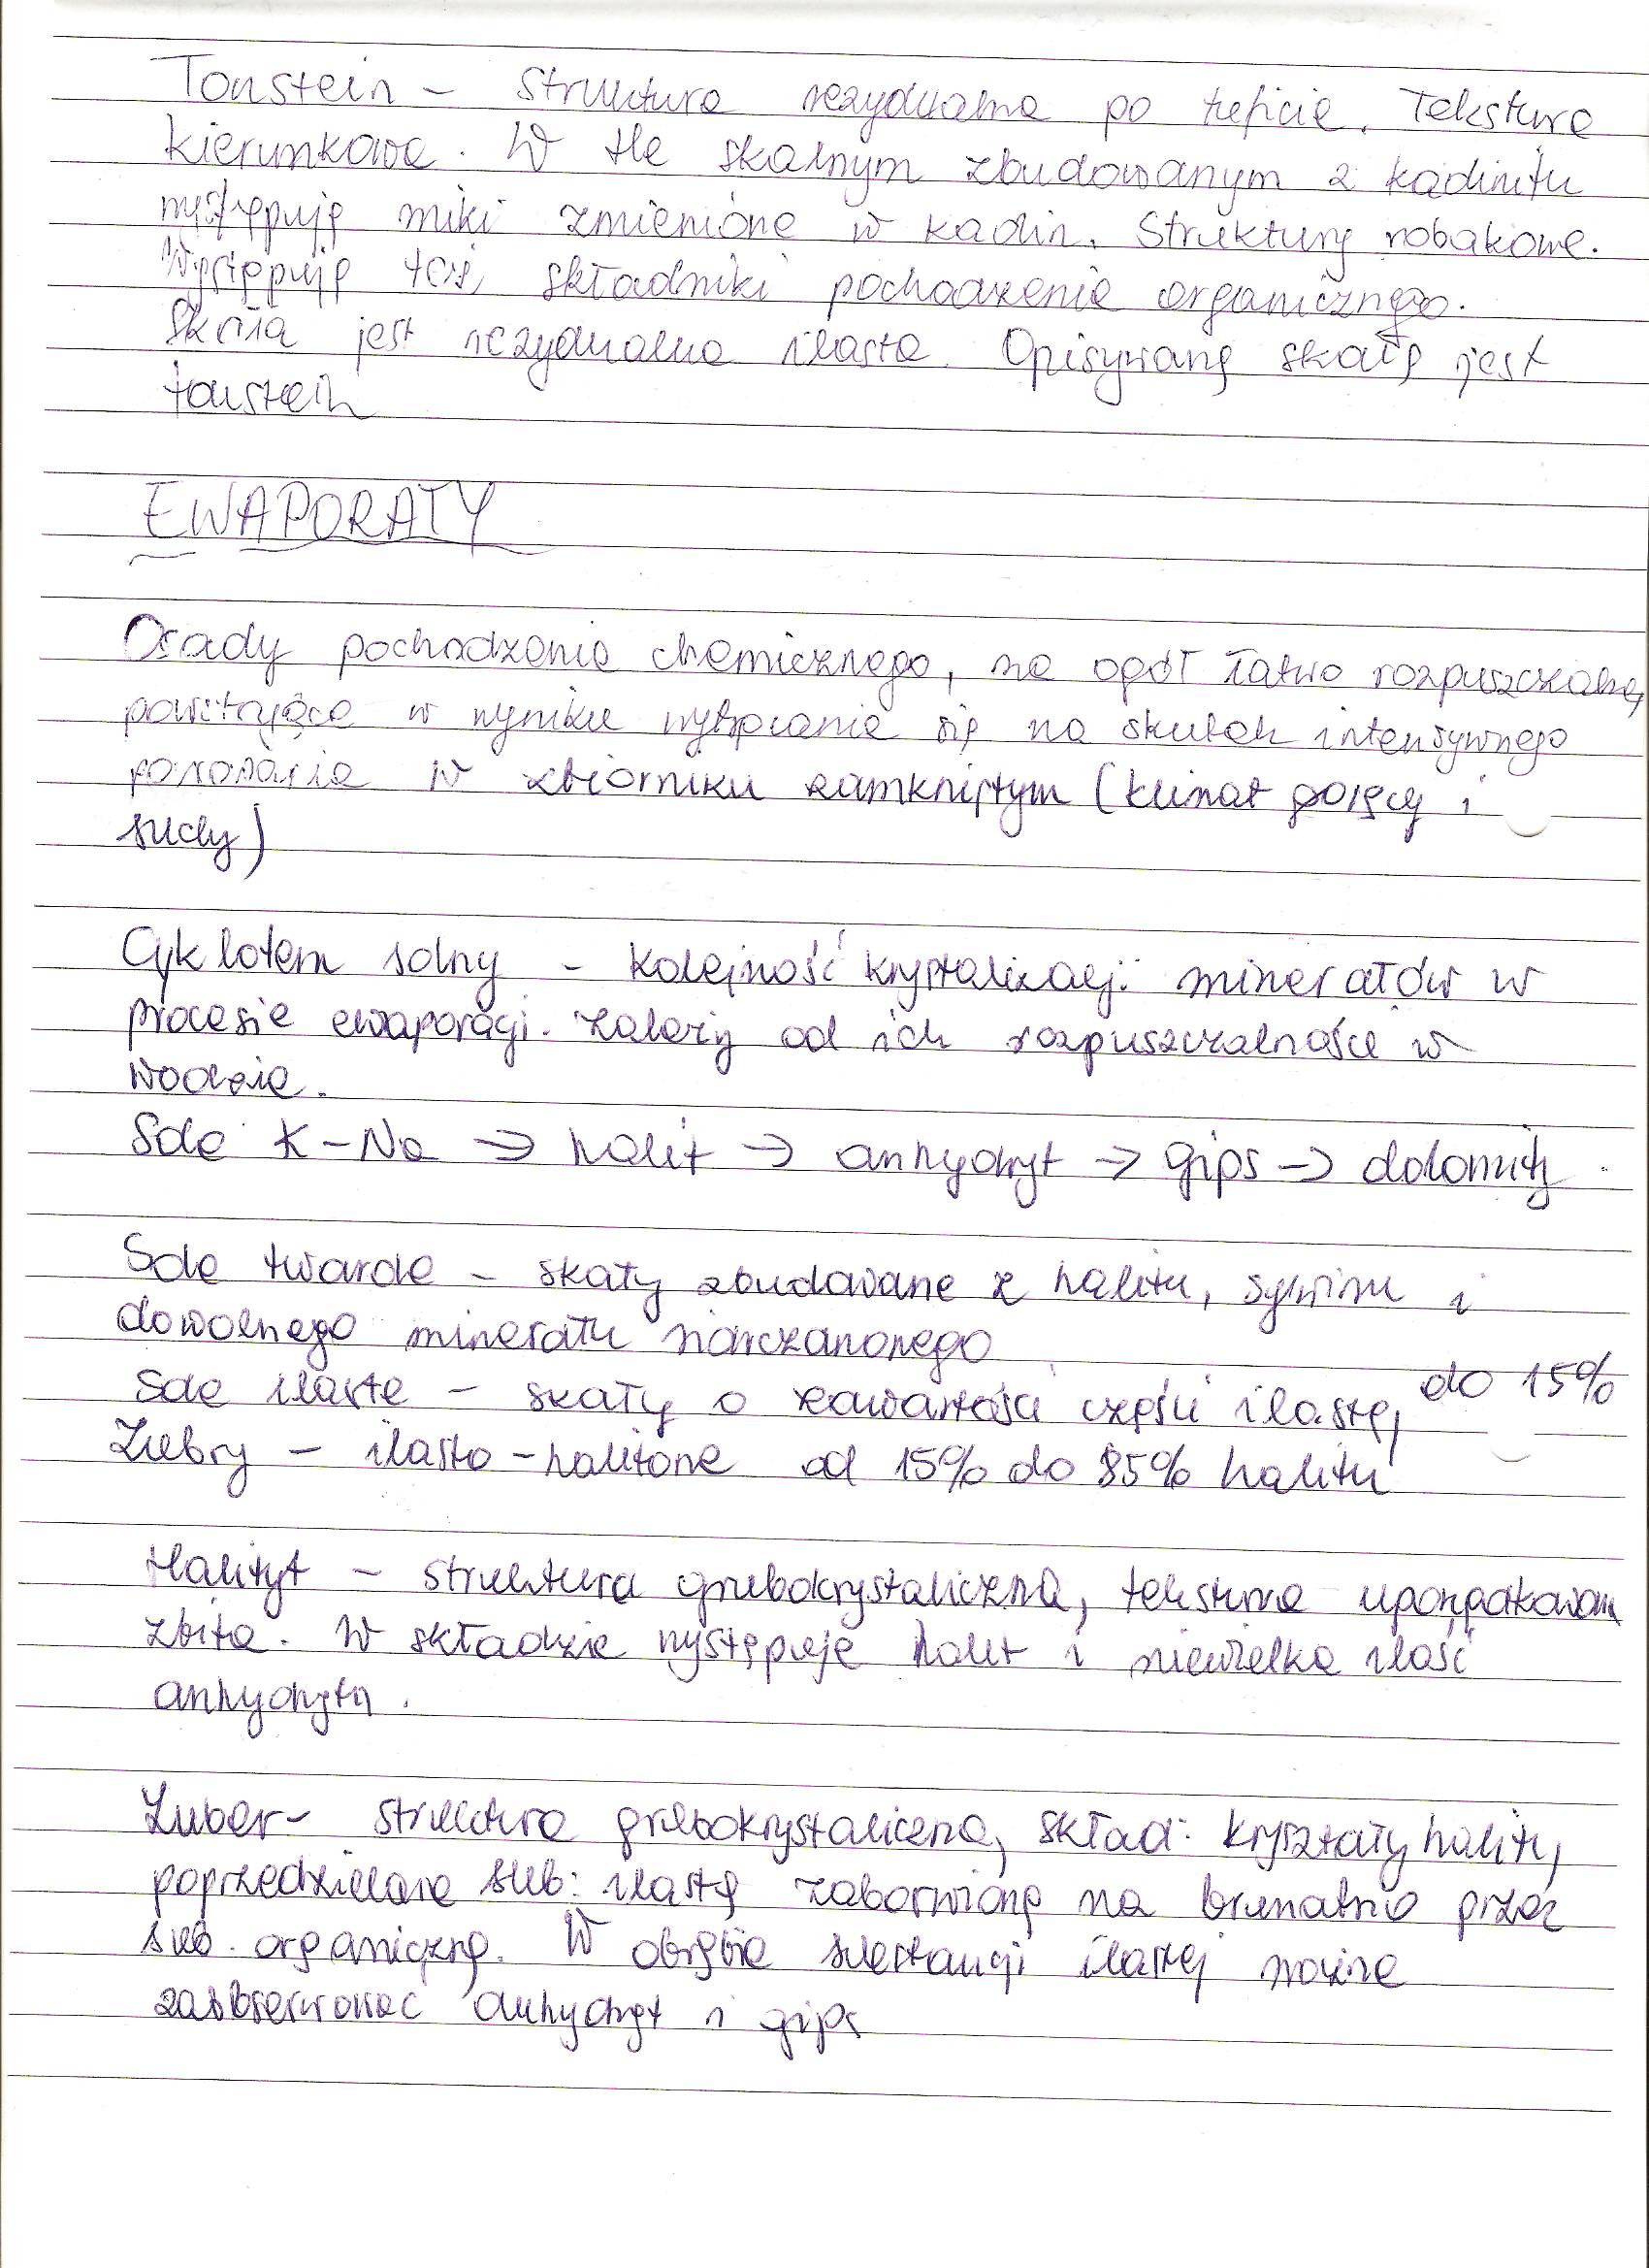 Tonstein – Struktura rezydualna po tuficie. Tekstura
kierunkowa. W tle skalnym zbudowanym z kaolinitu
występują miki zmienione w kaolin. Struktury robakowe.
Występują też składniki pochodzenia organicznego.
Skała jest rezydualna ilasta. Opisywaną skałą jest
tonstein
EWAPORATY
Osady pochodzenia chemicznego, na ogół łatwo rozpuszczalne,
powstające w wyniku wytrącania się na skutek intensywnego
parowania w zbiorniku zamkniętym (klimat gorący i
suchy)
Cyklotem solny – kolejność krystalizacji minerałów w
procesie ewaporacji. Zależy od ich rozpuszczalności w
wodzie.
Sole K–Na → halit → anhydryt → gips → dolomity
Sole twarde – skały zbudowane z halitu, sylwinu i
dowolnego minerału siarczanowego
Sole ilaste – skały o zawartości części ilastej do 15%
Zubry – ilasto-halitowe od 15% do 85% halitu
Halityt – struktura grubokrystaliczna, tekstura uporządkowana
zbita. W składzie występuje halit i niewielka ilość
anhydrytu.
Zuber – struktura grubokrystaliczna, skład: kryształy halitu,
poprzedzielane sub: ilastą zabarwioną na brunatno przez
sub. organiczną. W obrębie substancji ilastej można
zaobserwować anhydryt i gips